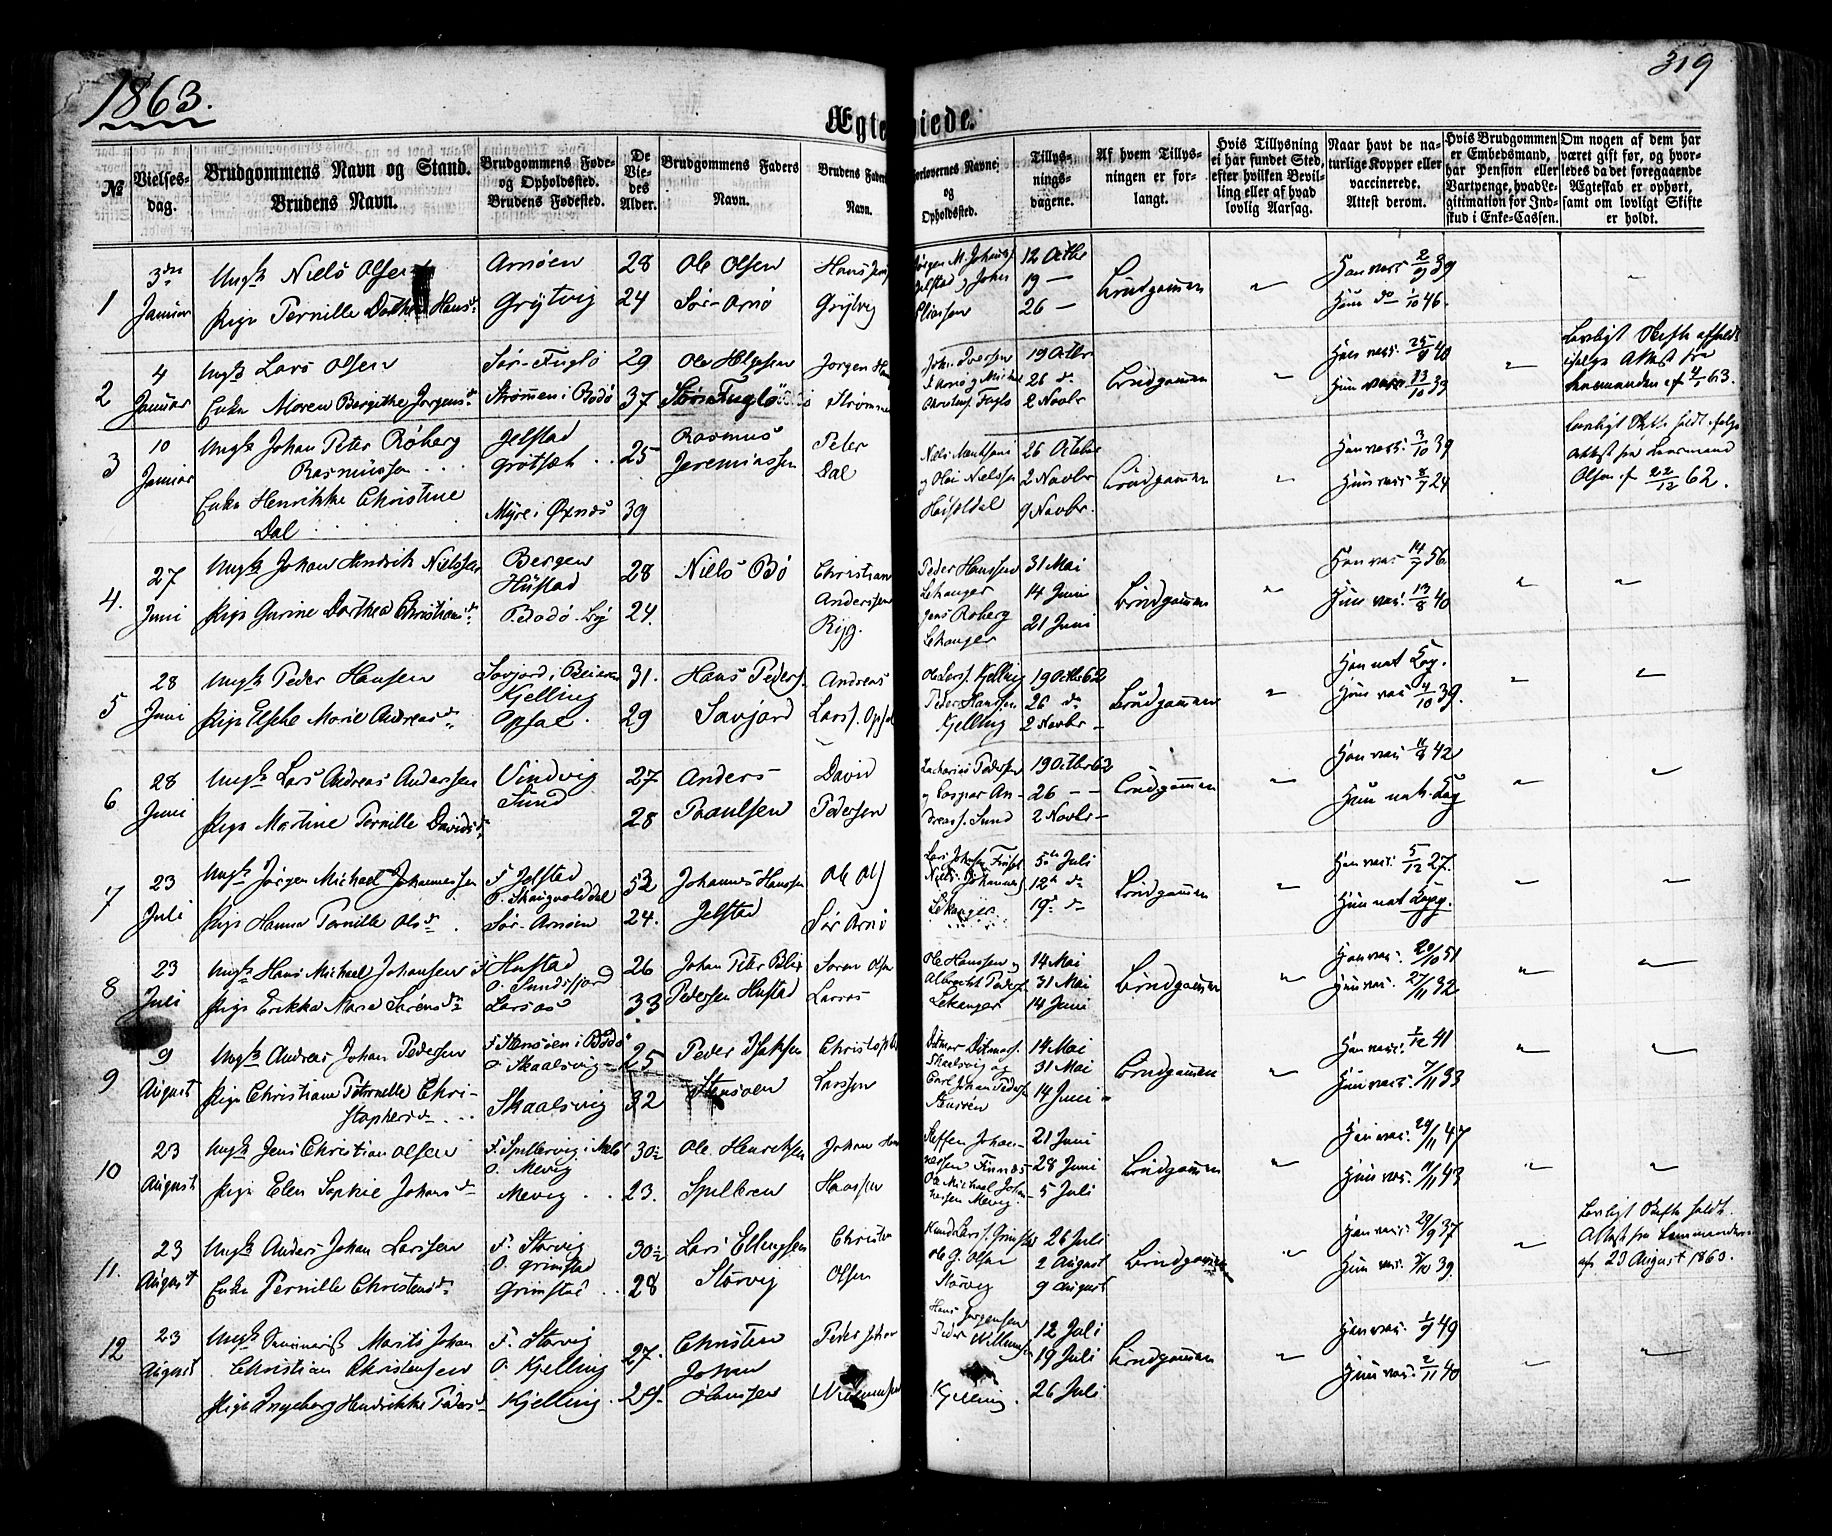 1863.
319
Ægteviede.
№
Vielses-
dag.
Brudgommens Navn og Stand.
Brudens Navn.
Brudgommens Føde-
og Opholdssted.
Brudens Fødested.
De
Vie-
des
Alder.
Brudgommens Faders
Navn.
Brudens Faders
Navn.
Forlovernes Navne
og
Opholdssted.
Tillys-
nings-
dagene.
Af hvem Tillys-
ningen er for-
langt.
Hvis Tillysning
ei har fundet Sted,
efter hvilken Bevil-
ling eller af hvad
lovlig Aarsag.
Naar havt de na-
turlige Kopper eller
vaccinerede.
Attest derom.
Hvis Brudgommen
er Embedsmand,
har Pension eller
Vartpenge, hvad Le-
gitimation for Ind-
skud i Enke-Cassen.
Om nogen af dem har
været gift før, og hvor-
ledes da det foregaaende
Ægteskab er ophørt,
samt om lovligt Skifte
er holdt.
1
3die Januar
Ungk Niels Olsen
Pige Pernille Dorthea Hansd.
Arnøen
Grytvig
28
24
Ole Olsen
Sør-Arnø
Hans
Grytvig
Jørgen M.
Jelstad og John
Eliassen
12 Octbr
19 —
26 —
Brudgommen
"
Han vacc. 2/9 39
Hun do 1/10 46.
2
4 Januar
Ungk Lars Olsen
Enke Maren Bergithe Jørgensd.
Sør-Fuglø
Strømmen i Bodø
29
37
Ole Helgesen
Sør-Fuglø
Jørgen
Strømmen
John Iversen
S. Arnø og Michel
Christens. Fuglø
19 Octbr
26 do
2 Novbr
Brudgommen
"
Han vacc. 25/9 40
Hun vacc. 13/10 33
"
Lovligt Skifte afholdt
ifølge Attest fra
Lensmanden af 4/1 63.
3
10 Januar
Ungk Johan Peter Røberg
Rasmussen
Enke Henrikke Christine
Dal
Jelstad
Grotsæt
Myre i Øxnes
25
39
Rasmus
Jeremiassen
Peter
Dal
og Ole Nielssen
26 October
2 Novbr
9 Novbr.
Brudgommen
"
Han vacc. 3/10 39
Hun vacc. 8/7 24
Lovligt Skifte holdt ifølge
Attest fra Lensmand
Olsen af 22/12 62.
4.
27 Juni
Ungk Johan Hendrik Nielssen
Pige Gurine Dorthea Christiansd.
Bergen
Hustad
Bodø By
28
24.
Niels Bø
Christian
Anderssen
Peder Hanssen
Lekanger
Jens Røberg
Lekanger
31 Mai
14 Juni
21 Juni
Brudgommen
"
Han vac. 14/7 56.
Hun vac. 13/8 40
"
"
5
28 Juni
Ungk Peder Hansen
Pige Elsche Marie Andreasd.
Savjord i Beiern
Kjelling
Opsal
31.
29
Hans Peders.
Savjord
Andreas
Larss. Opsal
Ole Larss. Kjelling
Peder Hanssen
Kjelling
19 Octbr 62
26 do
2 Novbr —
Brudgommen
"
Han nat. Kop.
Hun vac. 4/10 39.
"
"
6
28 Juni
Ungk Lars Andreas Anderssen
Pige Martine Pernille Davidsd.
Vindvig
Sund
27
28
Anders
Paulsen
David
Pedersen
Zacharias Pedersen
og Caspar An-
dreass. Sund
19 Octbr 62
26 — —
2 Novbr —
Brudgommen
"
Han vac. 11/8 42
Hun nat. Kop
"
"
7
23 Juli
Ungk Jørgen Michael Johannessen
Pige Hanna Pernille Olsd.
F. Jelstad
Sør-Arnøen
52
24.
Johannes Hanssen
Jelstad
Ole Ols
Sør Arnø
Niels Johannes
Lekanger
5te Juli
12te do
19de do
Brudgommen
"
Han vacc. 5/12 27.
Hun nat. Kopp.
"
"
8
23 Juli
Ungk Hans Michael Johansen
Pige Erikka Maria Sørensd.
F. Hustad
O. Sundsfjord
Larsos
26
33
Johan Peter Blix
Pedersen Hustad
Søren Olsen
Larsos
Ole Hanssen og
Albrecht Peders.
Lekanger
14 Mai
31 Mai
14 Juni
Brudgommen
"
Han vac. 20/10 51
Hun vac. 27/11 32
"
"
9
9 August
Ungk Andreas Johan Pedersen
Pige Christiane Petronelle Chri-
stophersd.
F. Stensøen i Bodø
O. Skaalsvig
Skaalsvig
25
32
Peder Isaksen
Stensøen
Christopher
Larssen
Ditmar Ditmars.
Skaalsvig og
Carl Johan Peders.
14 Mai
31 Mai
14 Juni
Brudgommen
"
Han vacc. 41
Hun vacc. 7/11 33
"
"
10
23 August
Ungk Jens Christian Olsen
Pige Elen Sophie Johansd.
F. Spildervig i Melø
O. Mevig
Mevig
30½
23.
Ole Henriksen
Spilderen
Johan
Hanssen
Steffen Johan-
nessen Finnes
Ole Michael Johan-
nessen Mevig
21 Juni
28 Juni
5 Juli
Brudgommen
"
Han vac. 29/11 47
Hun vac. 11/11 43
"
"
11.
23 August
Ungk Anders Johan Larssen
Enke Pernille Christensd.
F. Storvig
O. Grimstad
Grimstad
30½
28
Lars Ellingsen
Storvig
Christen
Olsen
Knud Larss. Grimstad
Ole G. Olsen
Storvig
26 Juli
2 August
9 August
Brudgommen
"
Han vac. 29/9 37
Hun vac. 39.
"
Lovligt Skifte holdt.
Attest fra Lensmanden
af 23 August 1863.
12
23 August
Ungk Seminarist Morits Johan
Christian Christensen
Pige Ingeborg Hendrikke Pedersd.
F. Storvig
O. Kjelling
Kjelling
27.
29.
Christen
Johan
Hanssen
Peder Johan
Willumsen
Hans Jørgensen
Peder Willumsen
Kjelling
12 Juli
19 Juli
26 Juli
Brudgommen
"
Han vac. 1/9 49
Hun vac. 2/11 40
"
"